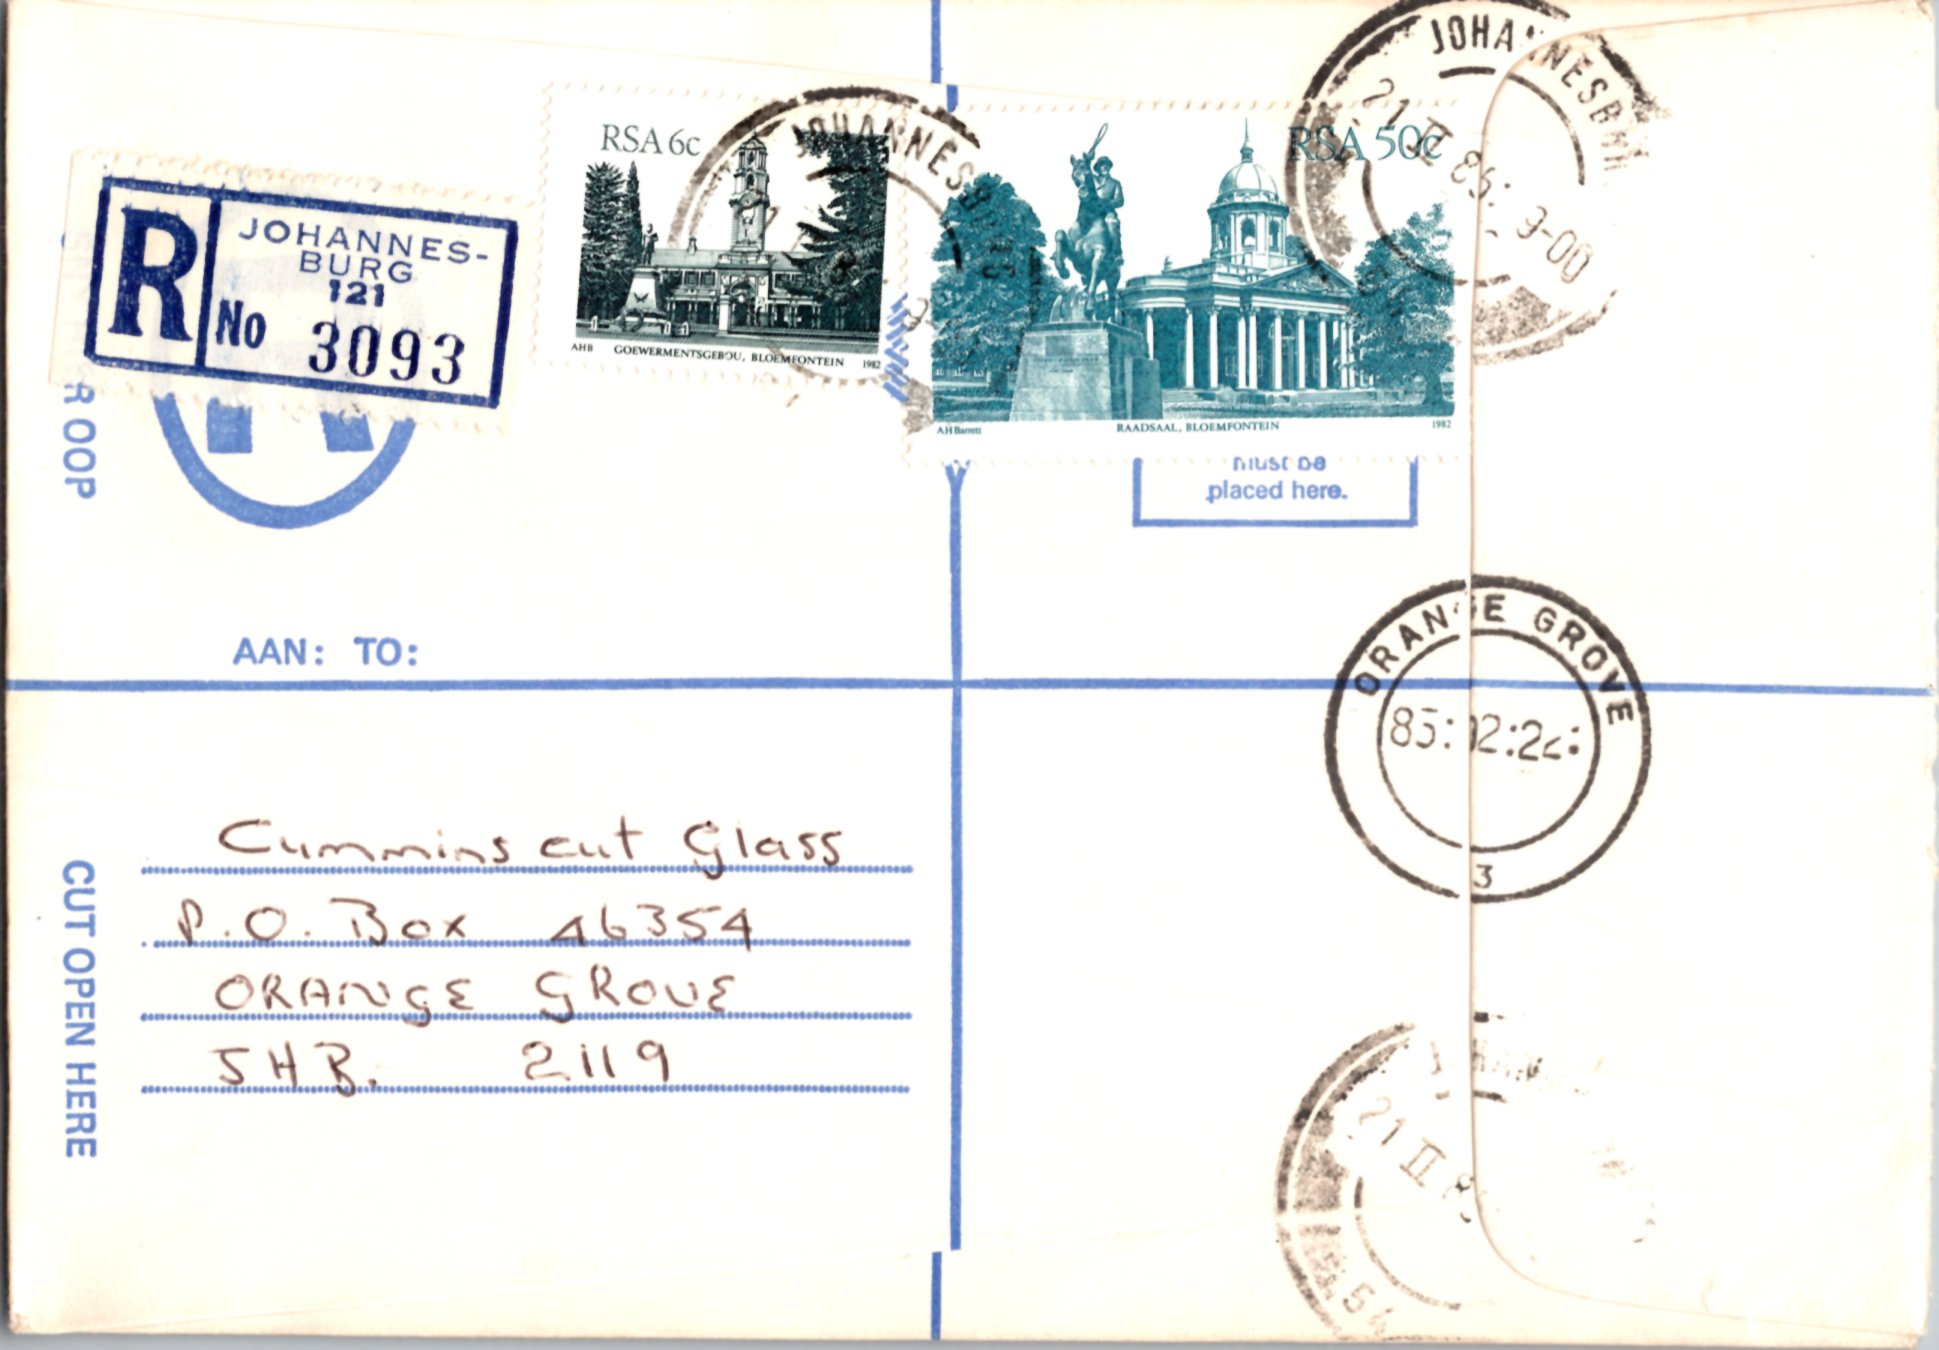 JOHANNESBURG
21 II 85: 9-00
JOHANNESBURG
RSA 6c
RSA 50c
R
JOHANNES-
BURG
121
No 3093
AHB GOEWERMENTSGEBOU, BLOEMFONTEIN 1982
AH Barrett RAADSAAL, BLOEMFONTEIN 1982
R OOP
must be
placed here.
ORANGE GROVE
85: 02:22:
3
AAN: TO:
Cummins cut Glass
P.O. Box 46354
ORANGE GROVE
JHB. 2119
CUT OPEN HERE
21 II 8